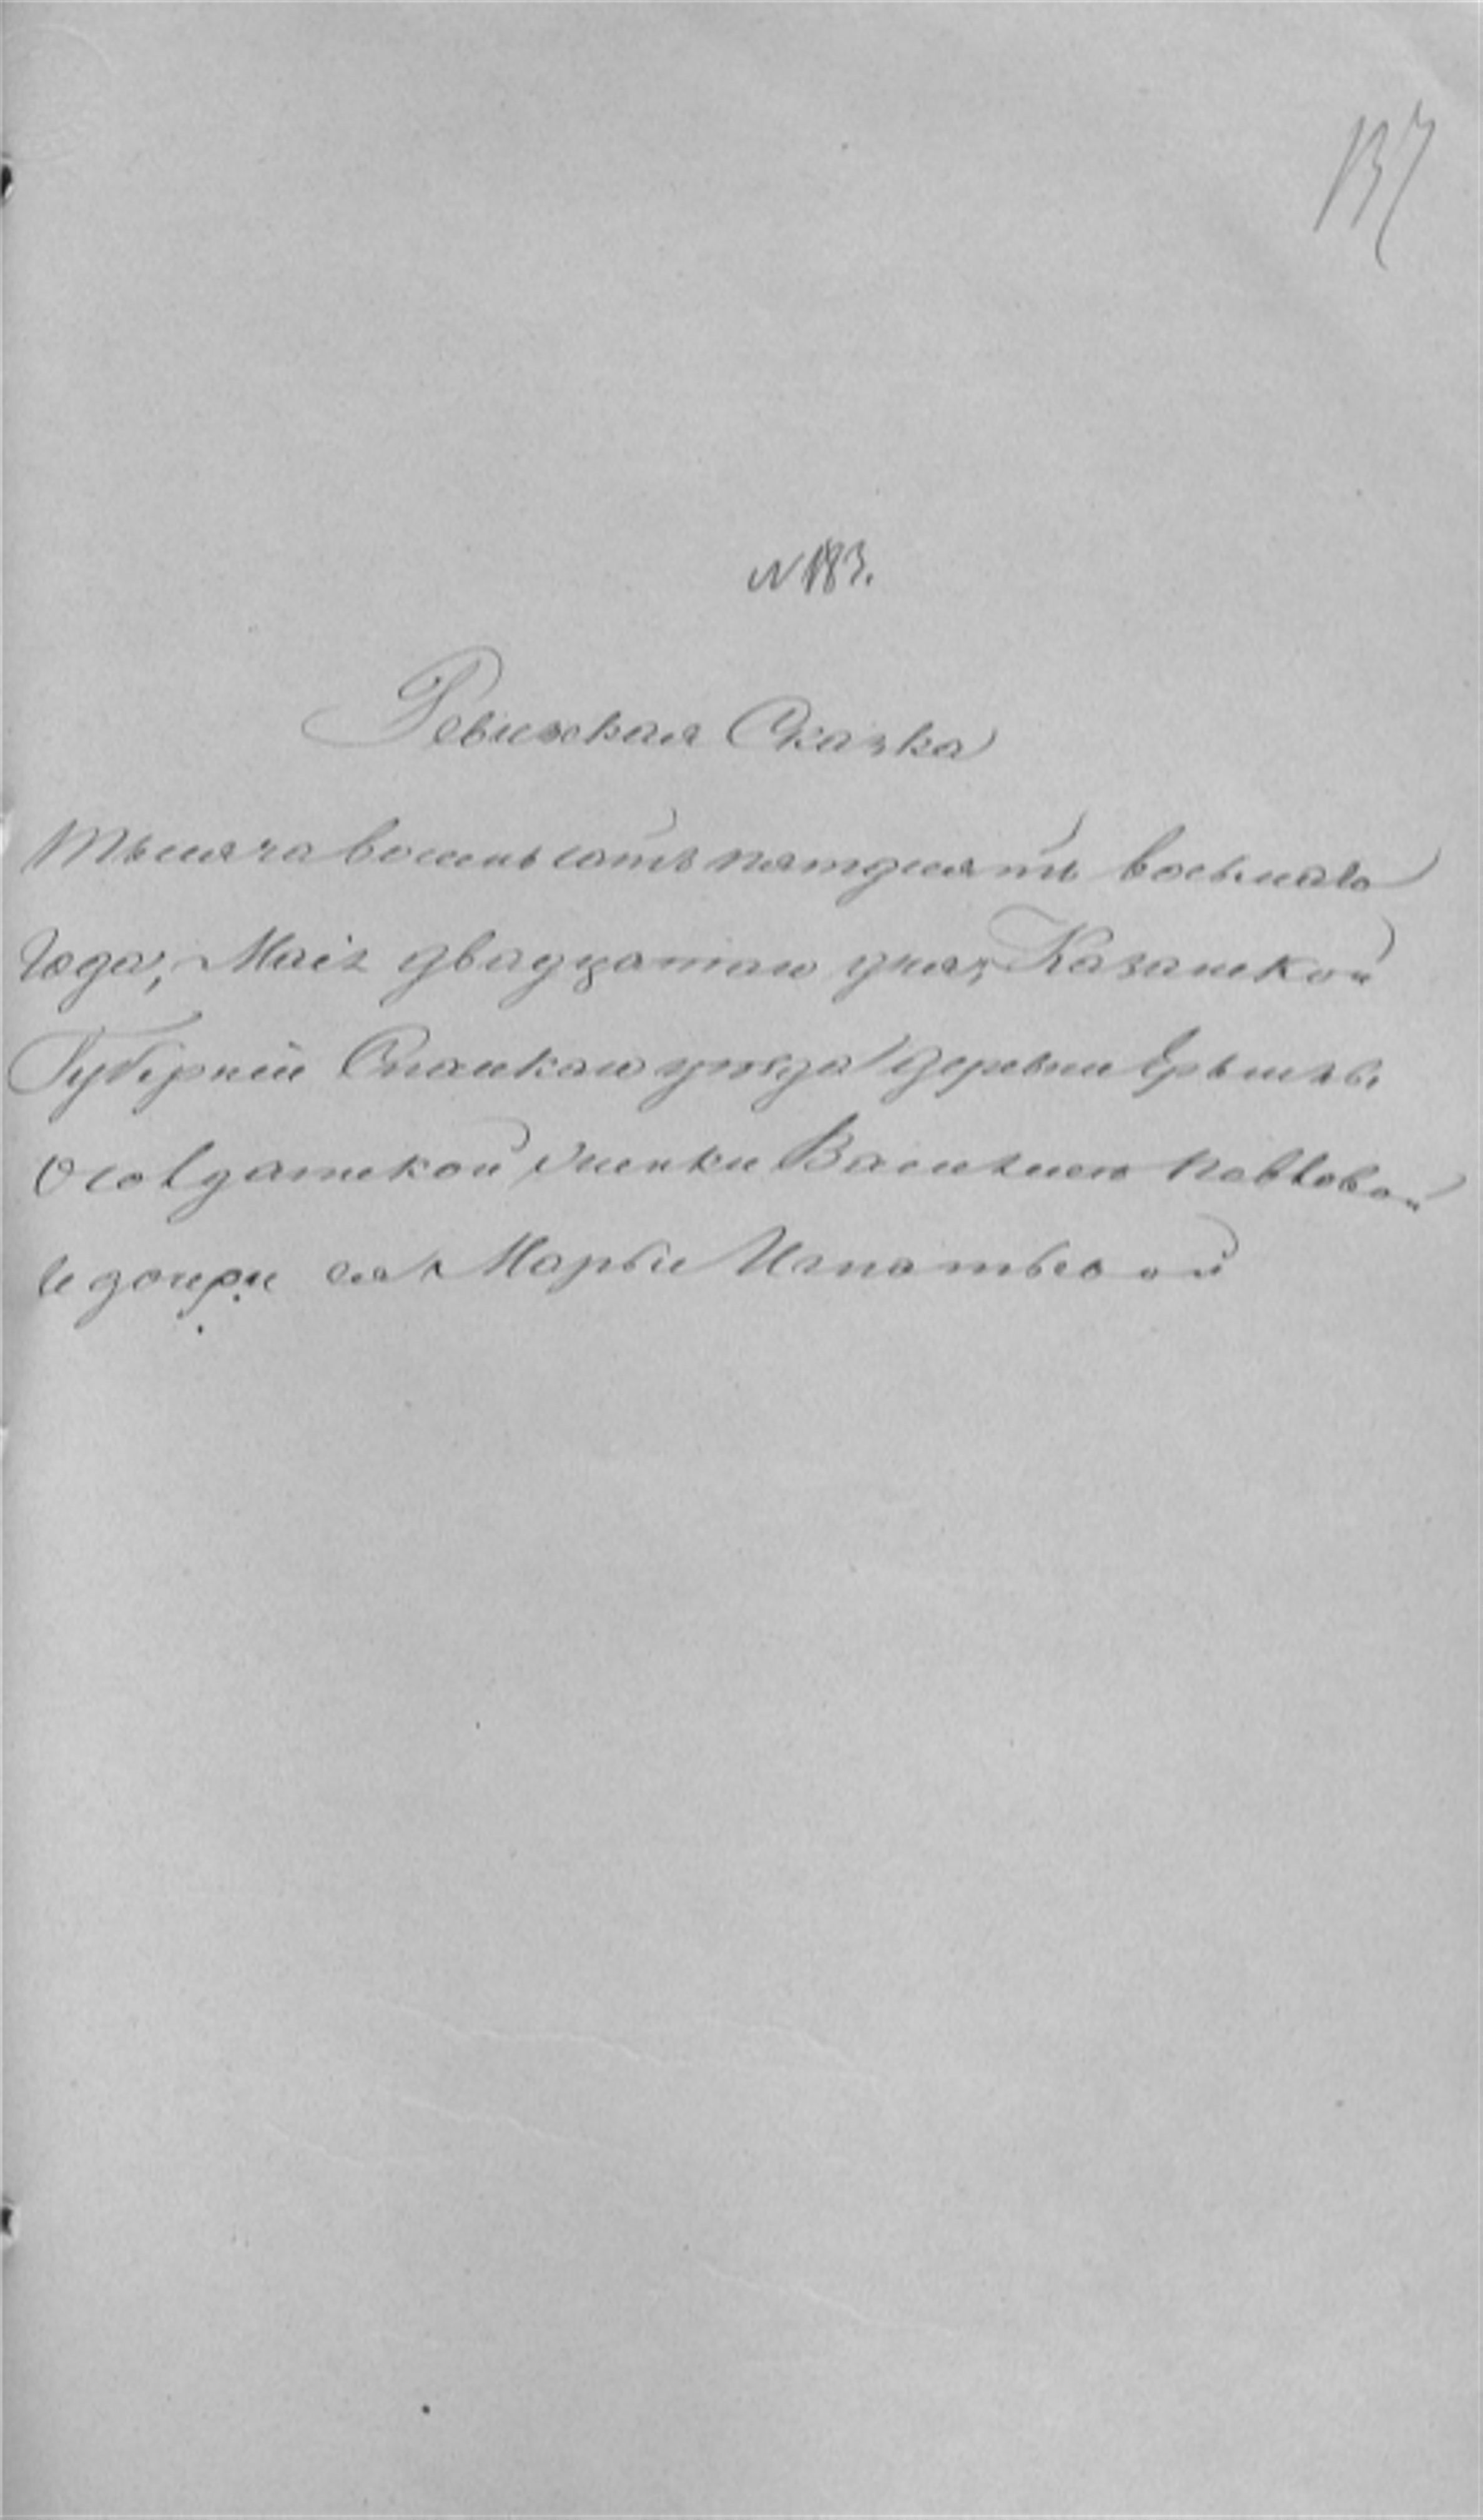 137
№ 183.
Ревизская Сказка
Тысяча восемьсотъ пятдесятъ восьмаго
года, Маія двадцатаго дня, Казанской
Губерніи Спаскаго уѣзда деревни
О солдатской женки Василисы Павловой
и дочери ея Марьи Игнатьевой